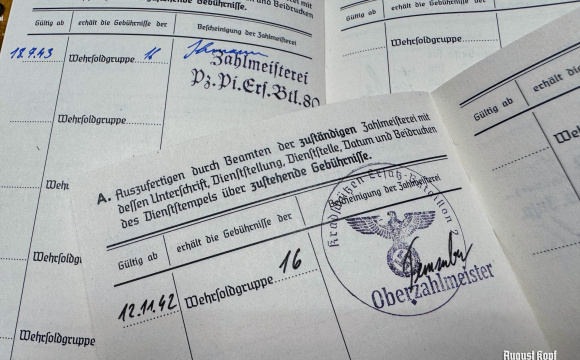 zustehende Gebührnisse.
Gültig ab erhält die Gebührnisse der Bescheinigung der Zahlmeisterei
12.9.43 Wehrsoldgruppe 16
Zahlmeisterei
Pz. Pi. Ers. Btl. 80
Wehrsoldgruppe
Wehrsoldgruppe
Wehrsoldgruppe
des Dienststempels über zustehende Gebührnisse.
Gültig ab erhält die Gebührnisse
Gültig ab erhält die
A. Auszufertigen durch Beamten der zuständigen Zahlmeisterei mit
dessen Unterschrift, Dienststellung, Dienststelle, Datum und Beidrucken
des Dienststempels über zustehende Gebührnisse.
Gültig ab erhält die Gebührnisse der Bescheinigung der Zahlmeisterei
12.11.42 Wehrsoldgruppe 16
Kradschützen Ersatz-Bataillon 2
Oberzahlmeister
August Kopf